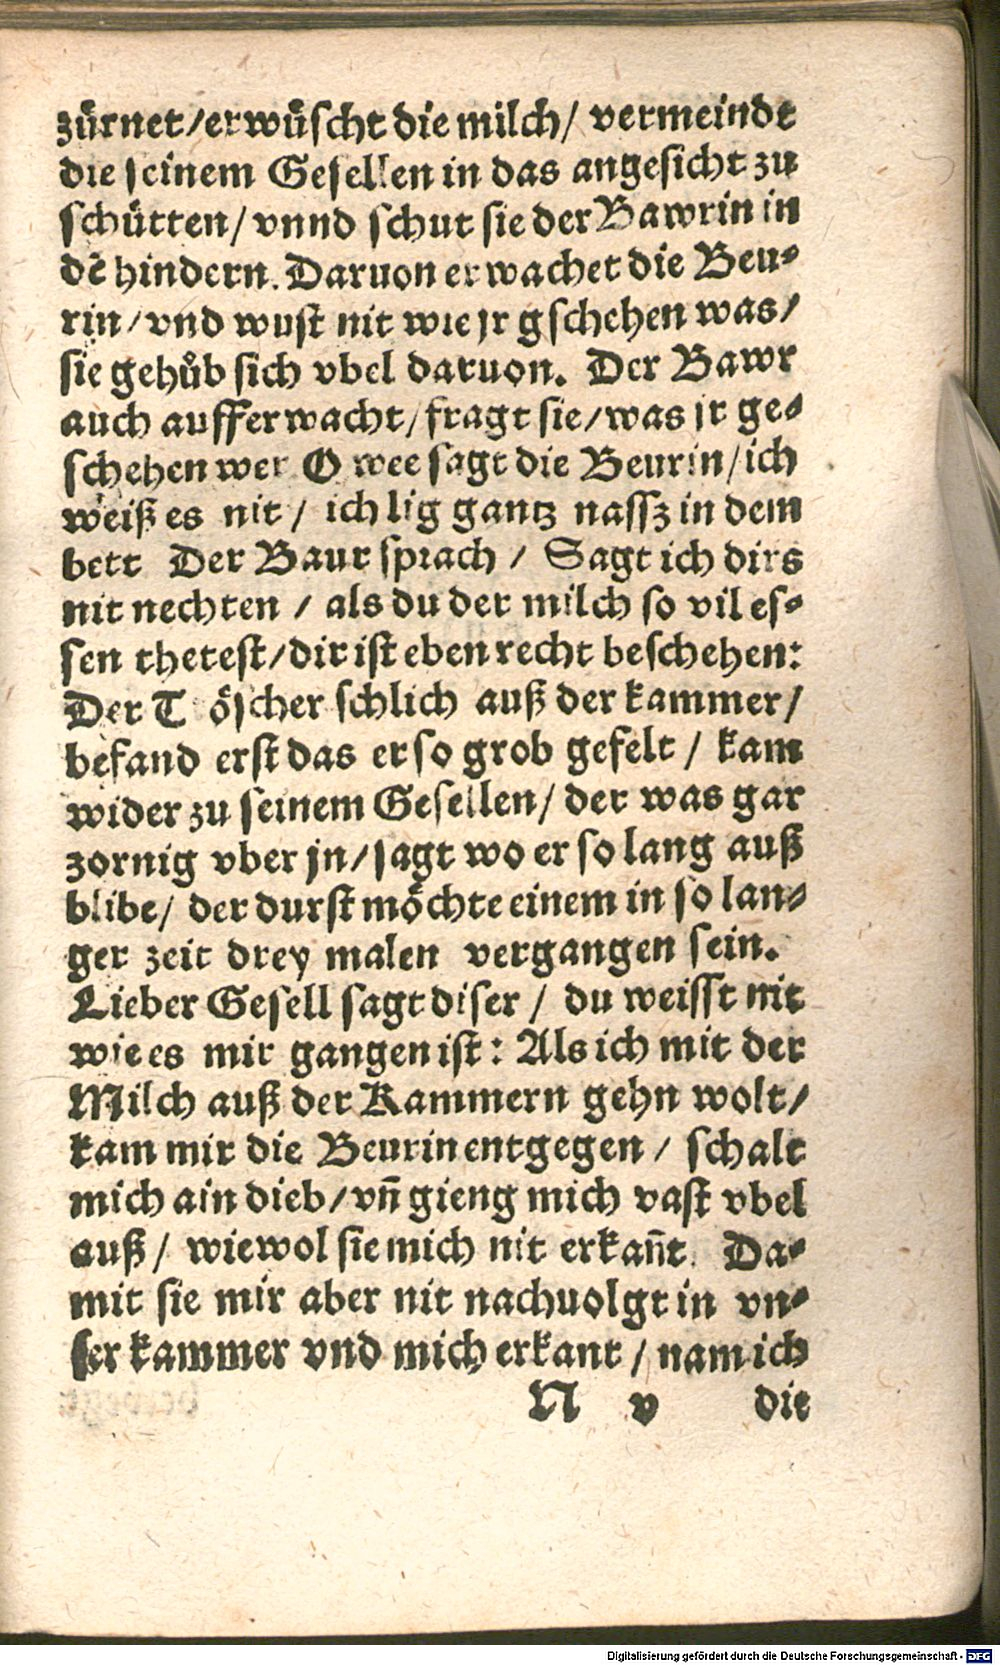 zürnet/erwüscht die milch/ vermeindt
die seinem Gesellen in das angesicht zu
schütten/ vnnd schut sie der Bawrin in
dē hindern. Daruon erwachet die Beu-
rin/vnd wust nit wie jr gschehen was/
sie gehůb sich vbel daruon. Der Bawr
auch aufferwacht/fragt sie/was jr ge-
schehen wer O wee sagt die Beurin/ich
weiß es nit/ ich lig gantz nassz in dem
bett Der Baur sprach/ Sagt ich dirs
nit nechten/ als du der milch so vil es-
sen thetest/dir ist eben recht beschehen:
Der T öscher schlich auß der kammer/
befand erst das er so grob gefelt/ kam
wider zu seinem Gesellen/ der was gar
zornig vber jn/sagt wo er so lang auß
blibe/ der durst möchte einem in so lan-
ger zeit drey malen vergangen sein.
Lieber Gesell sagt diser/ du weisst nit
wie es mir gangen ist: Als ich mit der
Milch auß der Kammern gehn wolt/
kam mir die Beurin entgegen/ schalt
mich ain dieb/vn̄ gieng mich vast vbel
auß/ wiewol sie mich nit erkan̄t. Da-
mit sie mir aber nit nachuolgt in vn-
ser kammer vnd mich erkant/ nam ich
N v die
Digitalisierung gefördert durch die Deutsche Forschungsgemeinschaft - DFG